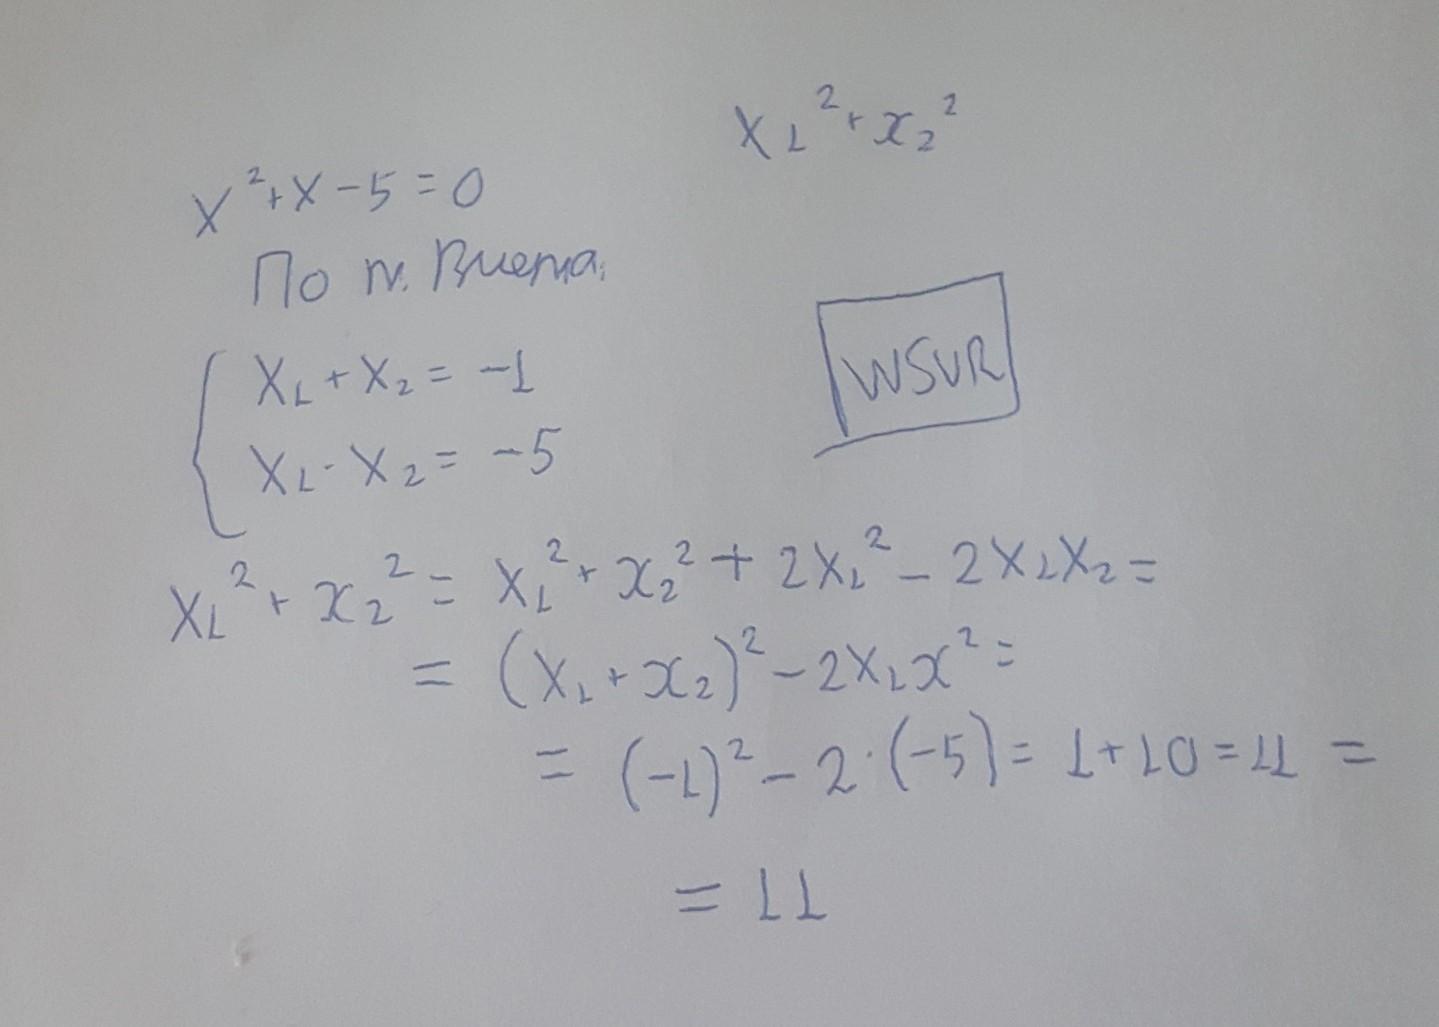 x₁² + x₂²
x² + x - 5 = 0
По т. Виета:
x₁ + x₂ = -1
x₁ · x₂ = -5
WSVR
x₁² + x₂² = x₁² + x₂² + 2x₁² - 2x₁x₂ =
= (x₁ + x₂)² - 2x₁x² =
= (-1)² - 2 · (-5) = 1 + 10 = 11 =
= 11